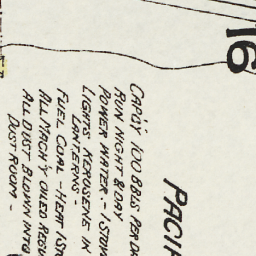 16
PACIF
CAP'Y 100 BBLS PER DA
RUN NIGHT & DAY
POWER WATER - 1 STON
LIGHTS KEROSENE IN
LANTERNS -
FUEL COAL - HEAT 1 STO
ALL MACH'Y OILED REGU
ALL DUST BLOWN INTO
DUST ROOM -